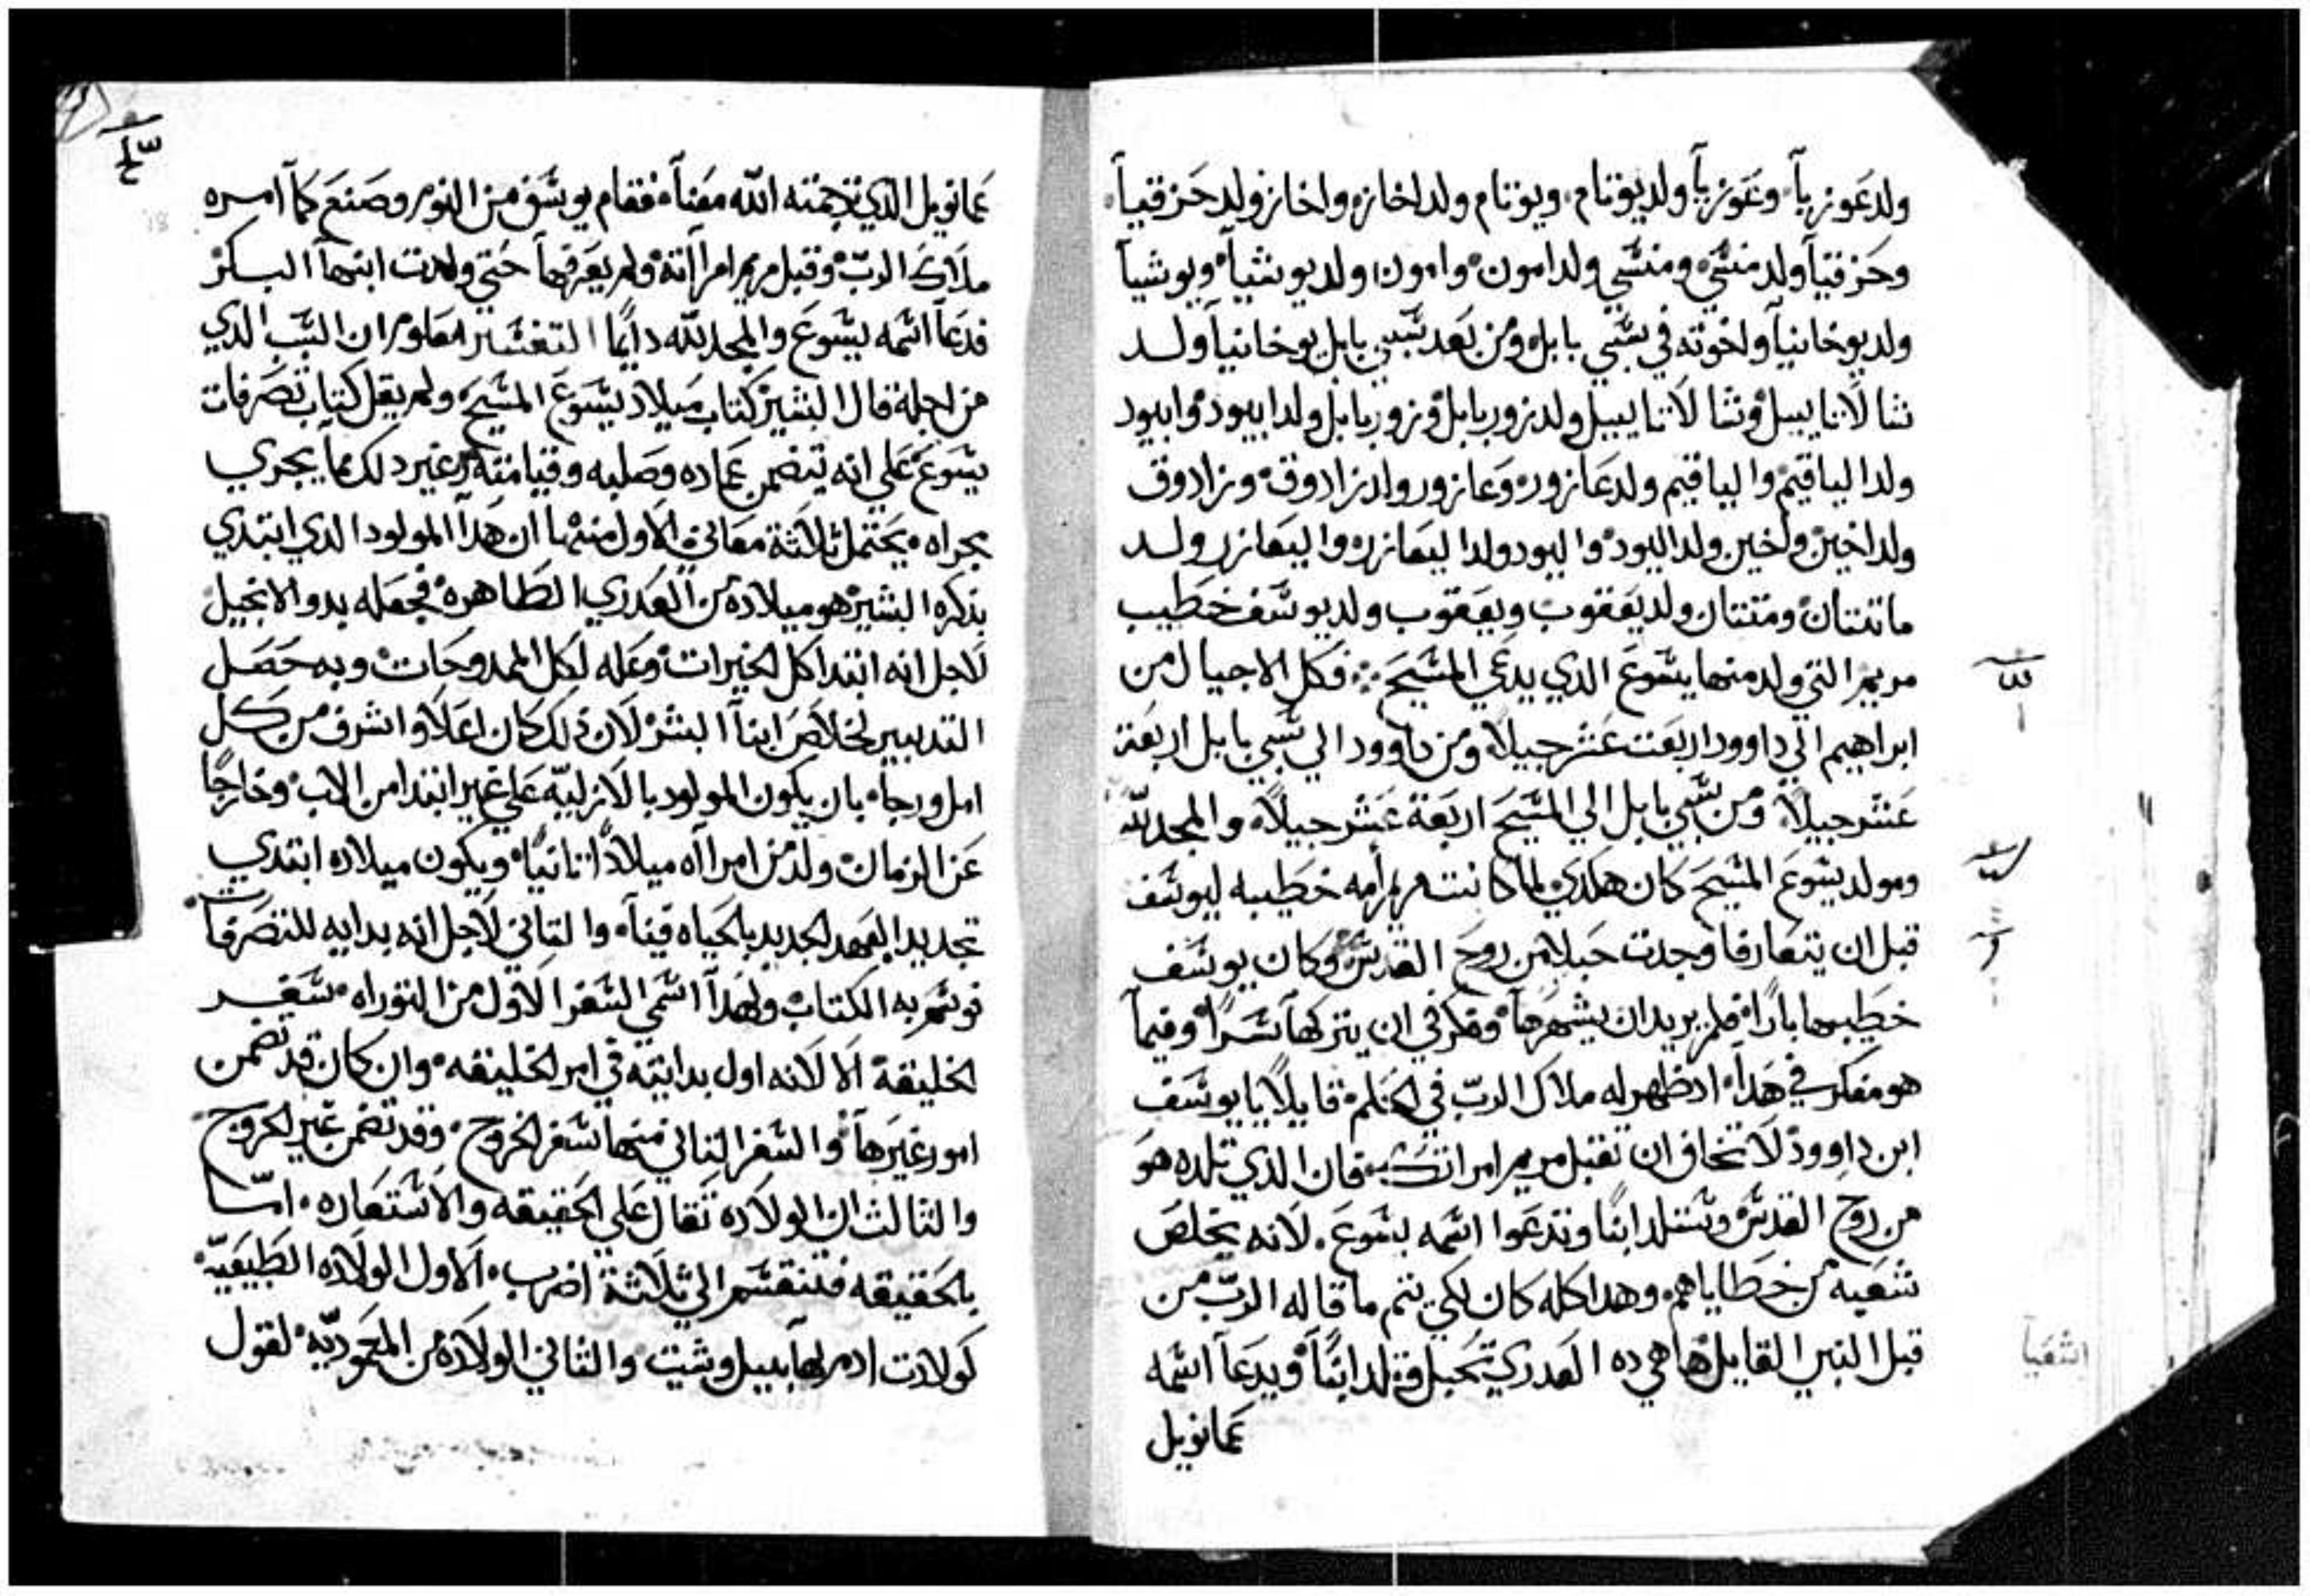 ولد عوزيا وعوزيا ولد يوتام ويوتام ولد اخاز واخاز ولد حزقيا
وحزقيا ولد منسي ومنسي ولد امون وامون ولد يوشيا ويوشيا
ولد يوخانيا واخوته في سبي بابل ومن بعد سبي بابل يوخانيا ولد
شالاتاييل وشالاتاييل ولد زوربابل وزوربابل ولد ابيود وابيود
ولد الياقيم والياقيم ولد عازور وعازور ولد زادوق وزادوق
ولد اخين واخين ولد اليود واليود ولد اليعازر واليعازر ولد
ماتتان ومتتان ولد يعقوب ويعقوب ولد يوسف خطيب
مريم التي ولد منها يسوع الذي يدعي المسيح فكل الاجيال من
ابراهيم الي داوود اربعت عشر جيلا ومن داوود الي سبي بابل اربعة
عشر جيلا ومن سبي بابل الي المسيح اربعة عشر جيلا والمجد لله
ومولد يسوع المسيح كان هكدي لما كانت مريم امه خطيبه ليوسف
قبل ان يتعارفا وجدت حبلا من روح القدس وكان يوسف
خطيبها بارا فلم يريد ان يشهرها وفكر في ان يتركها سرا وفيما
هو مفكر في هدا اد ظهر له ملاك الرب في الحلم قايلا يا يوسف
ابن داوود لا تخاف ان تقبل مريم امراتك فان الذي تلده هو
من روح القدس وستلد ابنا وتدعوا اسمه يسوع لانه يخلص
شعبه من خطاياهم وهدا كله كان لكي يتم ما قاله الرب من
قبل النبي القايل ها هي ده العدري تحبل وتلد ابنا ويدعا اسمه
عمانويل
اشعيا
عمانويل الذي ترجمته الله معنا فقام يوسف من النوم وصنع كما امره
ملاك الرب وقبل مريم امراته ولم يعرفها حتي ولدت ابنها البكر
فدعا اسمه يسوع والمجد لله دايما التفسير معلوم ان السبب الدي
من اجله قال البشير كتاب ميلاد يسوع المسيح ولم يقل كتاب تصرفات
يسوع علي انه يتضمن عماده وصلبه وقيامته وغير دلك مما يجري
مجراه يحتمل ثلاثة معاني الاول منها ان هدا المولود الذي ابتدي
بذكره البشير هو ميلاده من العدري الطاهره فجعله بدو الانجيل
لاجل انه ابتدا كل الخيرات وعله لكل الممدوحات وبه حصل
التدبير لخلاص ابنا البشر لان ذلك كان اعلا واشرف من كل
امل ورجا بان يكون المولود بالازليه علي غير ابتدا من الاب وخارجا
عن الزمان ولد من امراه ميلادا ثانيا ويكون ميلاده ابتدي
تجديد العهد الجديد بالحياه فينا والتاني لاجل انه بدايه للتصرفات
فوسم به الكتاب ولهدا اسمي السفر الاول من التوراه سفر
الخليقة الا لانه اول بدايته في امر الخليقه وان كان قد تضمن
امور غيرها والسفر الثاني منها سفر الخروج وقد تضمن غير الخروج
والثالث ان الولاده تقال علي الحقيقه والاستعاره اما
بالحقيقه فتنقسم الي ثلاثة اضرب الاول الولاده الطبيعيه
كولادت ادم لهابيل وشيت والثاني الولاده من المعموديه لقول